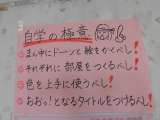 自学の極意
まん中にドーンと絵をかくべし！
それぞれに部屋をつくるべし！
色を上手に使うべし！
おおっ！となるタイトルをつけるべし！